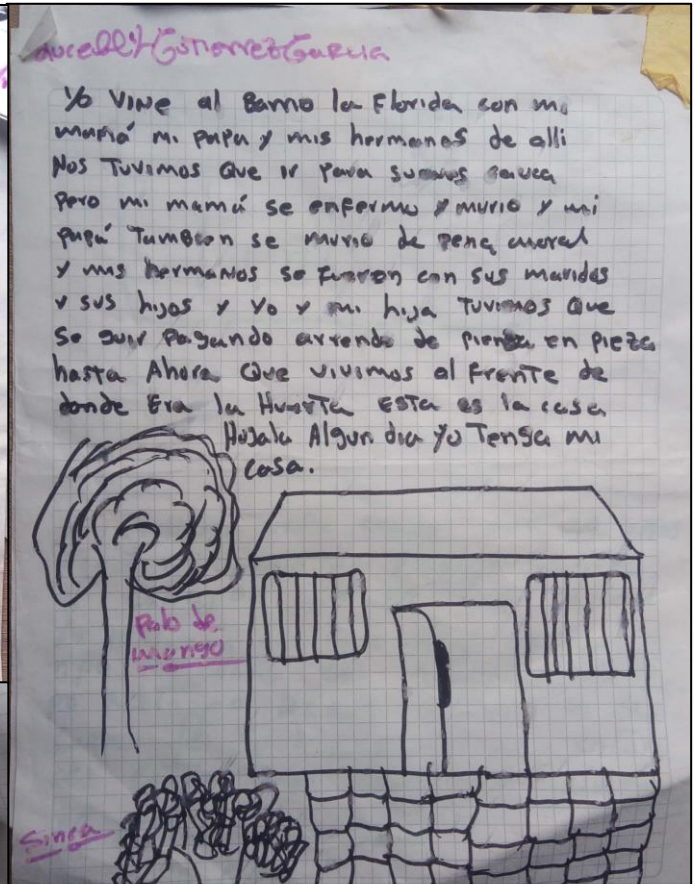 aucelly Gutierrez Garcia
Yo Vine al Barrio la Florida con mi
mamá mi papa y mis hermanos de alli
Nos Tuvimos Que ir para
Pero mi mamá se enfermo y murio y mi
papá Tambien se murio de pena moral
y mis hermanos se fueron con sus maridos
y sus hijos y Yo y mi hija Tuvimos Que
Seguir Pagando arrendo de pieza en pieza
hasta Ahora Que vivimos al frente de
donde Era la Huerta ESTa es la casa
Hojala Algun dia Yo Tenga mi
casa.
Palo de
mango
Sinea